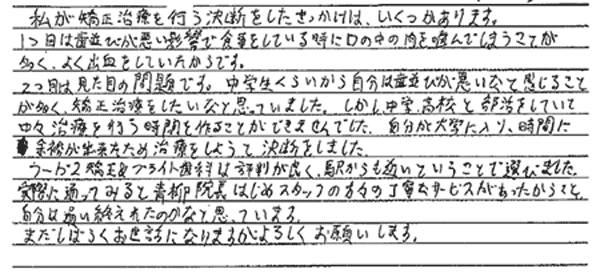 私が矯正治療を行う決断をしたきっかけは、いくつかあります。
1つ目は歯並びが悪い影響で食事をしている時に口の中の肉を噛んでしまうことが
多く、よく出血をしていたからです。
2つ目は見た目の問題です。中学生くらいから自分は歯並びが悪いなと感じること
が多く、矯正治療をしたいなと思っていました。しかし中学、高校と部活をしていて
中々治療を行う時間を作ることができませんでした。自分が大学に入り、時間に
余裕が出来たため治療をしようと決断をしました。
ラーゴ2矯正&ブライト歯科は評判が良く、駅からも近いということで選びました。
実際に通ってみると青柳院長はじめスタッフの方々の丁寧なサービスがあったからこそ、
自分は通い終えれたのかなと思っています。
まだしばらくお世話になりますがよろしくお願いします。